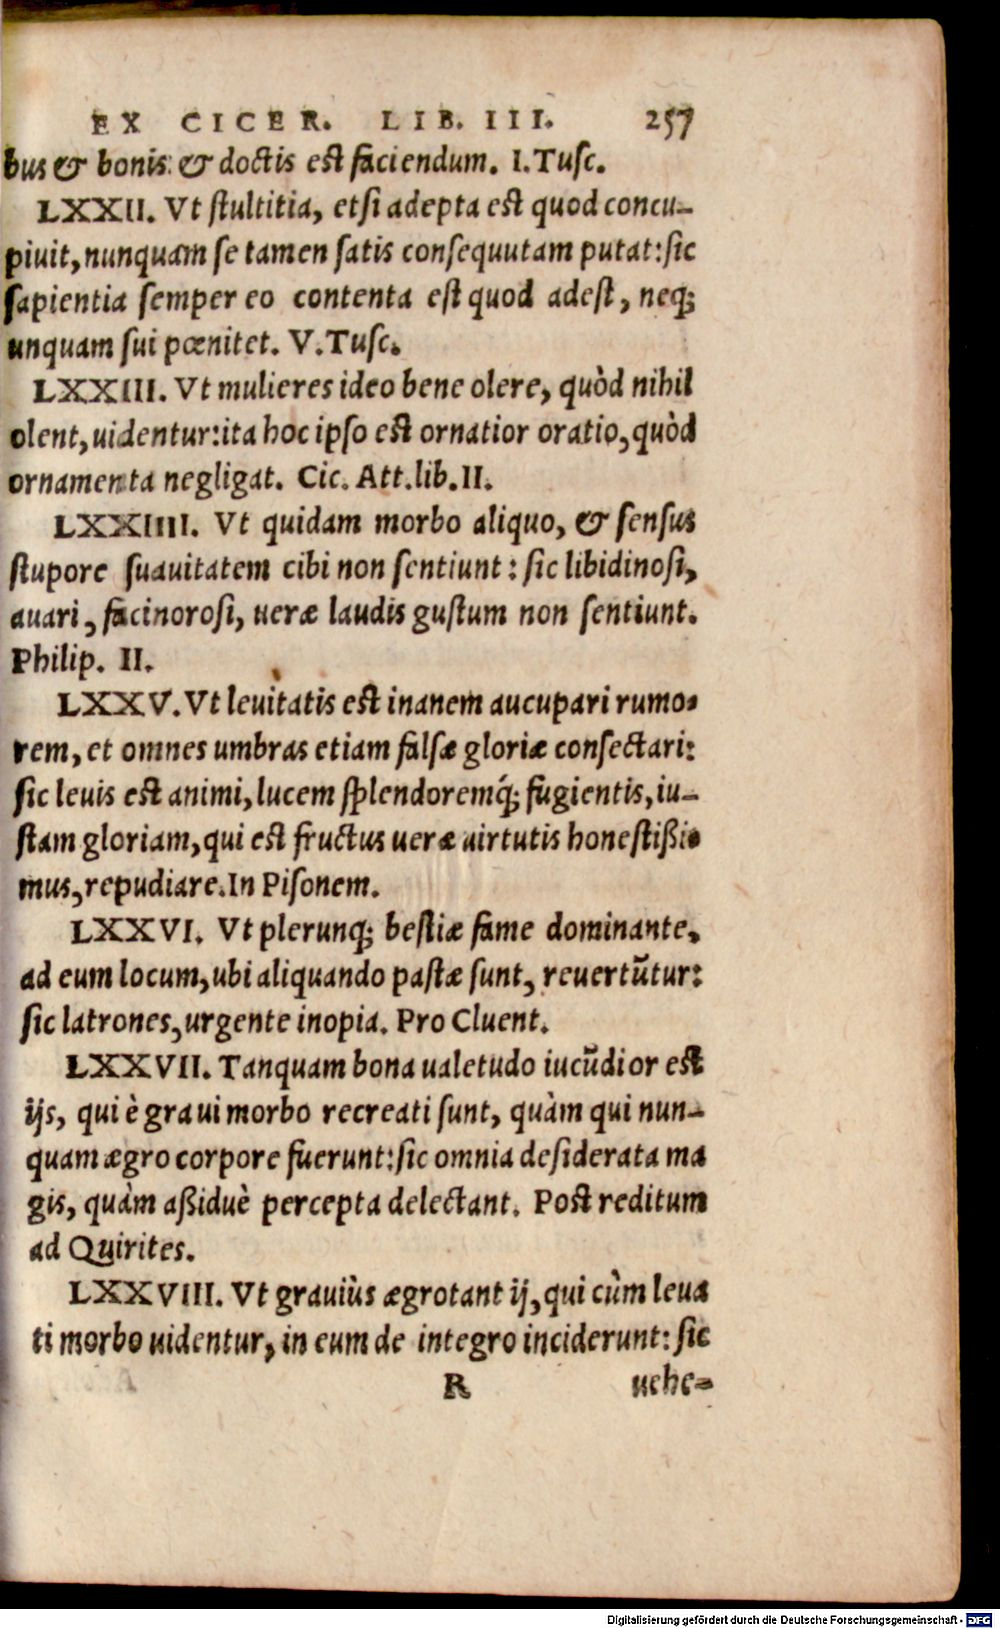 EX CICER. LIB. III. 257
bus & bonis & doctis est faciendum. I. Tusc.
LXXII. Vt stultitia, etsi adepta est quod concu-
piuit, nunquam se tamen satis consequutam putat: sic
sapientia semper eo contenta est quod adest, neq;
unquam sui pœnitet. V. Tusc.
LXXIII. Vt mulieres ideo bene olere, quòd nihil
olent, uidentur: ita hoc ipso est ornatior oratio, quòd
ornamenta negligat. Cic. Att. lib. II.
LXXIIII. Vt quidam morbo aliquo, & sensus
stupore suauitatem cibi non sentiunt: sic libidinosi,
auari, facinorosi, ueræ laudis gustum non sentiunt.
Philip. II.
LXXV. Vt leuitatis est inanem aucupari rumo-
rem, et omnes umbras etiam falsæ gloriæ consectari:
sic leuis est animi, lucem splendoremq́; fugientis, iu-
stam gloriam, qui est fructus ueræ uirtutis honestißi-
mus, repudiare. In Pisonem.
LXXVI. Vt plerunq; bestiæ fame dominante,
ad eum locum, ubi aliquando pastæ sunt, reuertũtur:
sic latrones, urgente inopia. Pro Cluent.
LXXVII. Tanquam bona ualetudo iucũdior est
ijs, qui è graui morbo recreati sunt, quàm qui nun-
quam ægro corpore fuerunt: sic omnia desiderata ma
gis, quàm aßiduè percepta delectant. Post reditum
ad Quirites.
LXXVIII. Vt grauiùs ægrotant ij, qui cùm leua
ti morbo uidentur, in eum de integro inciderunt: sic
R uehe-
Digitalisierung gefördert durch die Deutsche Forschungsgemeinschaft - DFG